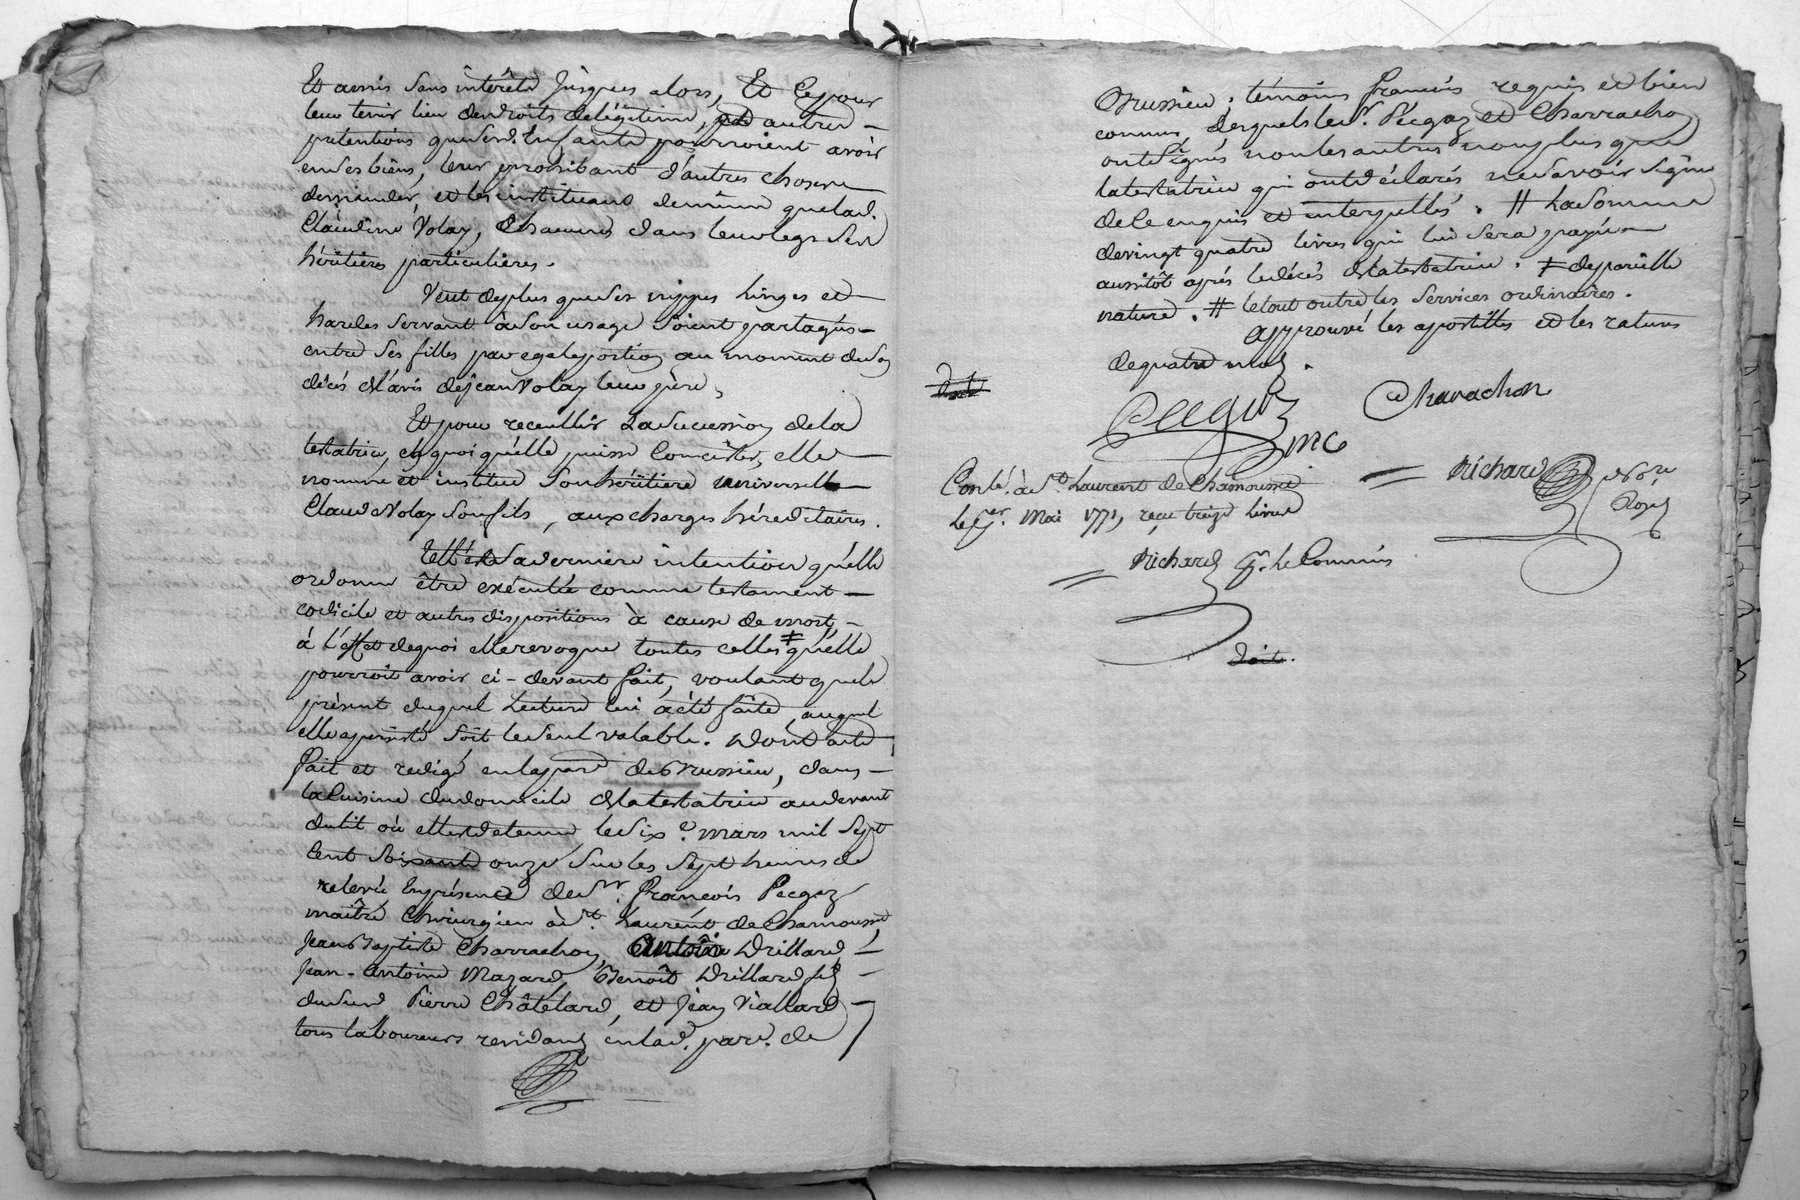 Et amis sans intérêts jusques alors, Et ce pour
leur tenir lieu des droits de légitime, et autres
prétentions que sesd. Enfants pourroient avoir
en ses biens, leur prohibant d'autres choses
demander, et les instituant de même que lad.
Claudine Volay, chacuns dans leur legs ses
héritières particulières.
Veut de plus que ses nippes linges et
hardes servant à son usage soient partagés
entre ses filles par egale portion au moment de son
décés et d'avis de jean Volay leur père,
Et pour recueillir sa succession de la
testatrice, en quoi qu'elle puisse Concister, elle
nomme et institue son héritière universelle
Claude Volay son fils, aux charges héréditaires.
Telle est sa derniere intention qu'elle
ordonne être exécutée comme testament
codicile et autres dispositions à cause de mort,
à l'effet de quoi elle revoque toutes celles ǂ qu'elle
pourroit avoir ci-devant fait, voulant que le
présent duquel lecture lui a été faite, auquel
elle a persisté soit le seul valable. Dont acte
fait et redigé en la paroi. de Brussieu, dans
la Cuisine du domicile de la testatrice au devant
du lit où elle est detenue le six.e mars mil sept
Cent soixante onze sur les sept heures de
relevée En présence de Sr. François Pecgoz
maître Chirurgien à St. Laurent de Chamousset,
Jean Baptiste Charrachon, Antoine Drillard,
Jean-Antoine Mazard, Benoît Drillard fils
dud. Pierre Châtelard, et Jean Viallard
tous laboureurs residants en lad. par. de
Brussieu; témoins francais requis et bien
connus, desquels led. Sr. Pecgoz et Charrachon
ont signés non les autres non plus que
la testatrice qui ont déclarés ne savoir signer
de ce enquis et interpellés. # La somme
de vingt quatre livres qui lui sera payée
aussitôt aprés le décés de la testatrice. ǂ de pareille
nature. # le tout outre les services ordinaires.
approuvé les apostilles et les ratures
de quatre mots.
Pecgoz
MC
Charachon
Conlé. à St. Laurent de Chamousset
Le 1er. Mai 1771, reçu treize livres
Richard
Nore
Royal
Richard pr. le Commis